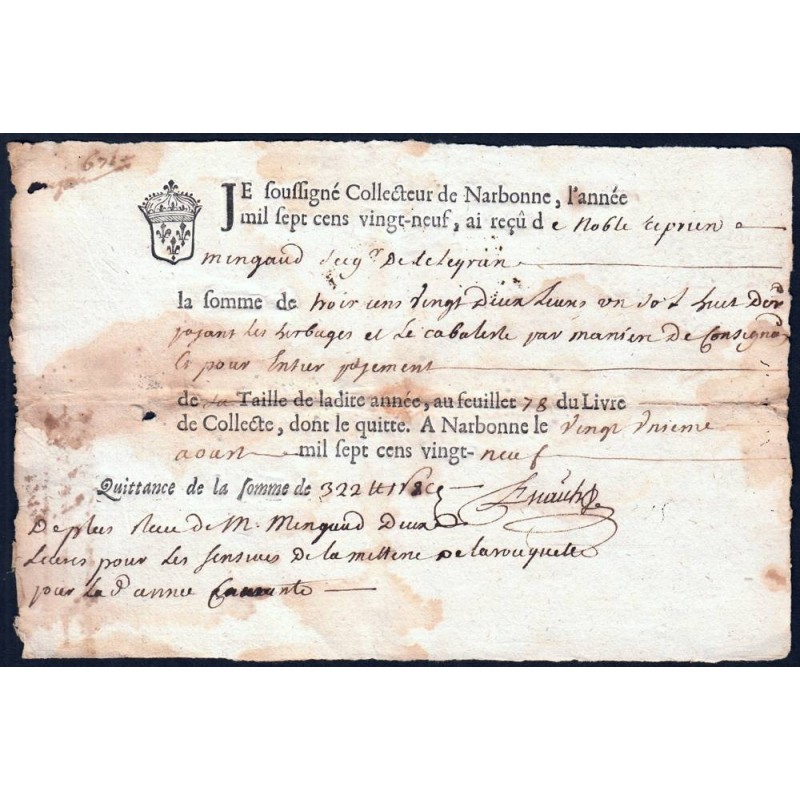 67
JE soussigné Collecteur de Narbonne, l'année
mil sept cens vingt-neuf, ai reçû de Noble
mingaud seigr De
la somme de trois cens Vingt Deux Liures un sol huit Der
payant les herbages et Le cabaliste par maniere De Consigna
Et pour Entier payement
de La Taille de ladite année, au feuillet 78 du Livre
de Collecte, dont le quitte. A Narbonne le Vingt Vnieme
aoust mil sept cens vingt-neuf
Quittance de la somme de 322
De plus Receu de Mr. Mingaud Deux
Liures pour Les sensives De la metterie De Larouquette
pour La de année Courante